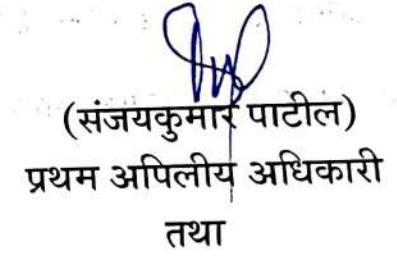 (संजयकुमार पाटील)
प्रथम अपिलीय अधिकारी
तथा